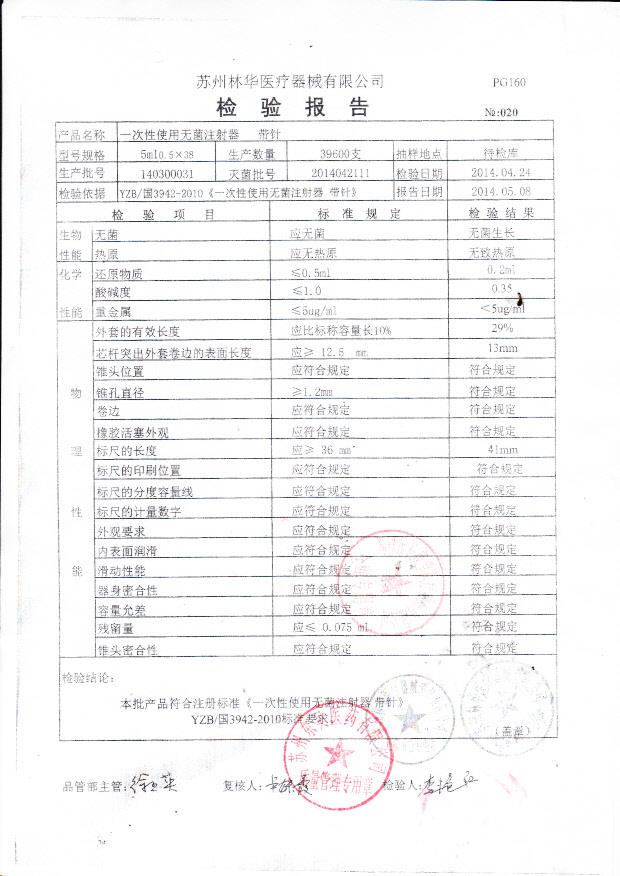 苏州林华医疗器械有限公司 PG160
检 验 报 告 №:020
产品名称 一次性使用无菌注射器 带针
型号规格 5ml0.5×38 生产数量 39600支 抽样地点 待检库
生产批号 140300031 灭菌批号 2014042111 检验日期 2014.04.24
检验依据 YZB/国3942-2010《一次性使用无菌注射器 带针》 报告日期 2014.05.08
检 验 项 目 标 准 规 定 检 验 结 果
生物 无菌 应无菌 无菌生长
性能 热原 应无热原 无致热原
化学 还原物质 ≤0.5ml 0.2ml
酸碱度 ≤1.0 0.35
性能 重金属 ≤5ug/ml <5ug/ml
外套的有效长度 应比标称容量长10% 29%
芯杆突出外套卷边的表面长度 应≥ 12.5 mm 13mm
锥头位置 应符合规定 符合规定
物 锥孔直径 ≥1.2mm 符合规定
卷边 应符合规定 符合规定
橡胶活塞外观 应符合规定 符合规定
理 标尺的长度 应≥ 36 mm 41mm
标尺的印刷位置 应符合规定 符合规定
标尺的分度容量线 应符合规定 符合规定
性 标尺的计量数字 应符合规定 符合规定
外观要求 应符合规定 符合规定
内表面润滑 应符合规定 符合规定
能 滑动性能 应符合规定 符合规定
器身密合性 应符合规定 符合规定
容量允差 应符合规定 符合规定
残留量 应≤ 0.075 ml 符合规定
锥头密合性 应符合规定 符合规定
检验结论:
本批产品符合注册标准《一次性使用无菌注射器 带针》
YZB/国3942-2010标准要求
(盖章)
品管部主管: 复核人: 检验人:
质量管理专用章